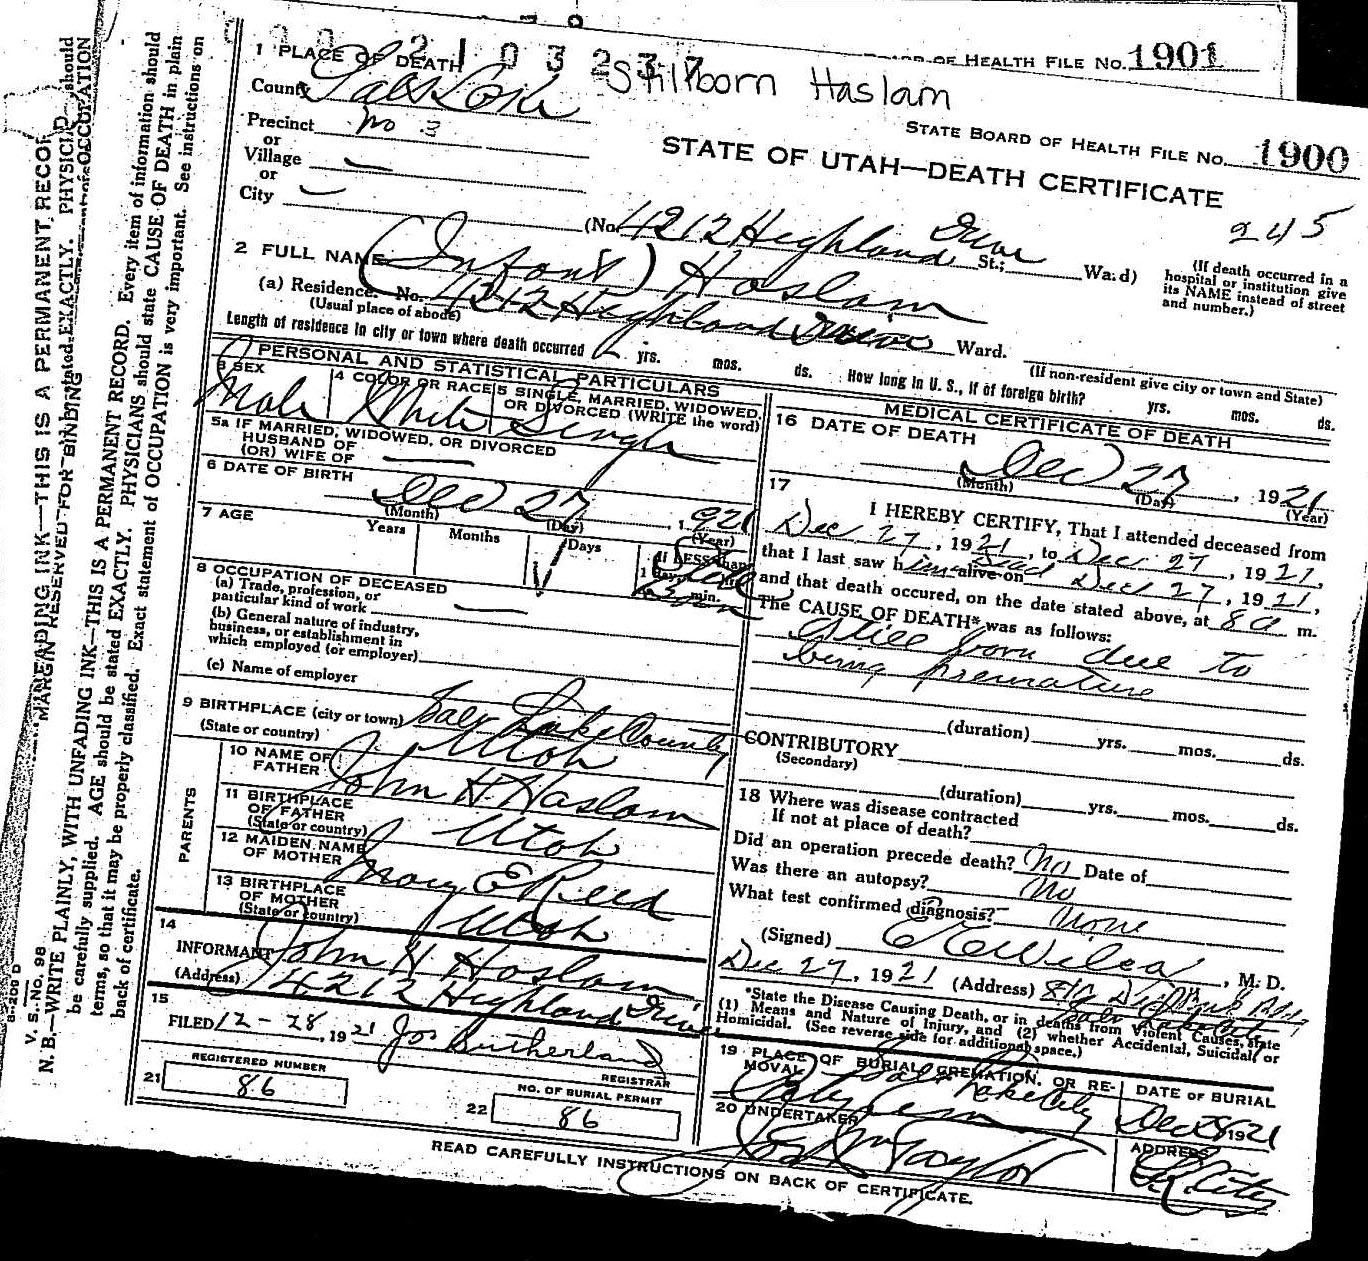 2103237
BOARD OF HEALTH FILE NO. 1901
Stillborn Haslam
STATE BOARD OF HEALTH FILE NO. 1900
STATE OF UTAH—DEATH CERTIFICATE
245
1 PLACE OF DEATH
County Salt Lake
Precinct No 3
or
Village —
or
City —
(No. 4212 Highland Drive St.; Ward)
(If death occurred in a hospital or institution give its NAME instead of street and number.)
2 FULL NAME (Infant) Haslam
(a) Residence. No. 4212 Highland Drive Ward.
(Usual place of abode)
(If non-resident give city or town and State)
Length of residence in city or town where death occurred yrs. mos. ds. How long in U. S., if of foreign birth? yrs. mos. ds.
PERSONAL AND STATISTICAL PARTICULARS
3 SEX Male
4 COLOR OR RACE White
5 SINGLE, MARRIED, WIDOWED, OR DIVORCED (WRITE the word) Single
5a IF MARRIED, WIDOWED, OR DIVORCED
HUSBAND OF
(OR) WIFE OF —
6 DATE OF BIRTH Dec 27, 1921
(Month) (Day) (Year)
7 AGE Years Months Days If LESS than
1 day, hrs.
min.
8 OCCUPATION OF DECEASED
(a) Trade, profession, or
particular kind of work —
(b) General nature of industry,
business, or establishment in
which employed (or employer)
(c) Name of employer
9 BIRTHPLACE (city or town) Salt Lake County
(State or country) Utah
PARENTS
10 NAME OF FATHER John H. Haslam
11 BIRTHPLACE OF FATHER (State or country) Utah
12 MAIDEN NAME OF MOTHER Mary E Reed
13 BIRTHPLACE OF MOTHER (State or country) Utah
14
INFORMANT John H Haslam
(Address) 4212 Highland Drive
15
FILED 12-28, 1921 Jos Sutherland
REGISTRAR
21 REGISTERED NUMBER 86
22 NO. OF BURIAL PERMIT 86
MEDICAL CERTIFICATE OF DEATH
16 DATE OF DEATH
Dec 27, 1921
(Month) (Day) (Year)
17
I HEREBY CERTIFY, That I attended deceased from
Dec 27, 1921, to Dec 27, 1921,
that I last saw him alive on Dead Dec 27, 1921,
and that death occured, on the date stated above, at 8 a m.
The CAUSE OF DEATH* was as follows:
Still born due to
being premature
(duration) yrs. mos. ds.
CONTRIBUTORY
(Secondary)
(duration) yrs. mos. ds.
18 Where was disease contracted
If not at place of death?
Did an operation precede death? No Date of
Was there an autopsy? No
What test confirmed diagnosis? None
(Signed) Wilcox, M. D.
Dec 27, 1921 (Address)
*State the Disease Causing Death, or in deaths from Violent Causes, state
(1) Means and Nature of Injury, and (2) whether Accidental, Suicidal, or
Homicidal. (See reverse side for additional space.)
19 PLACE OF BURIAL, CREMATION, OR REMOVAL Salt Lake City
City Cem
DATE OF BURIAL
Dec 28 1921
20 UNDERTAKER
Jos Wm Taylor
ADDRESS
S. L. City
READ CAREFULLY INSTRUCTIONS ON BACK OF CERTIFICATE.
V. S.—No. 98
MARGIN RESERVED FOR BINDING
N. B.—WRITE PLAINLY, WITH UNFADING INK—THIS IS A PERMANENT RECORD. Every item of information should
be carefully supplied. AGE should be stated EXACTLY. PHYSICIANS should state CAUSE OF DEATH in plain
terms, so that it may be properly classified. Exact statement of OCCUPATION is very important. See instructions on
back of certificate.